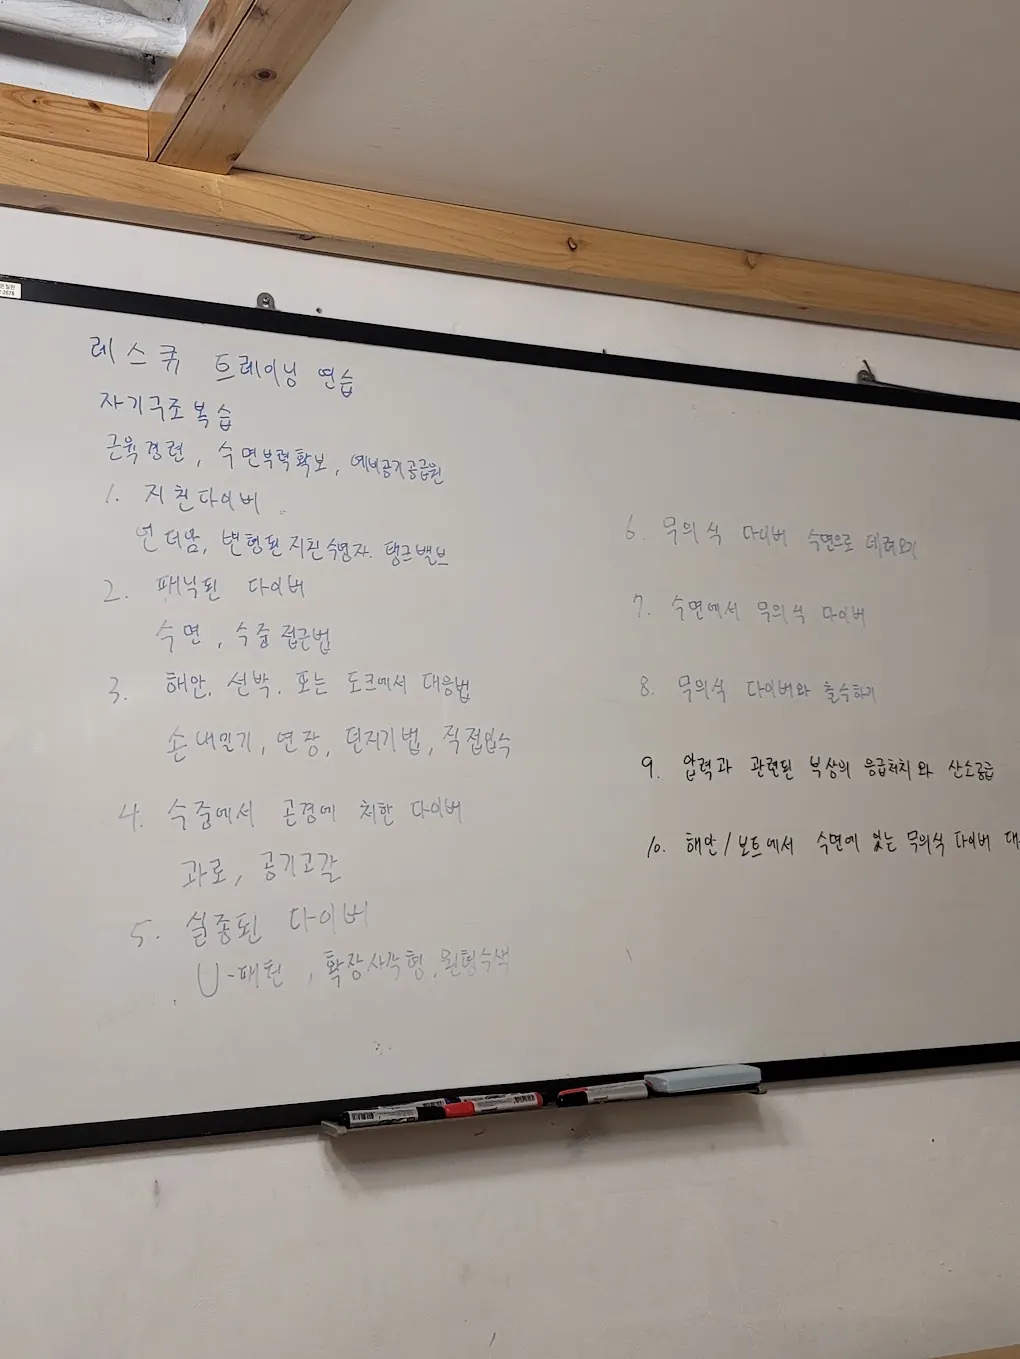 레스큐 트레이닝 연습
자기구조 복습
근육경련, 수면부력확보, 예비공기공급원
1. 지친다이버
언더암, 변형된 지친수영자. 탱크밸브
2. 패닉된 다이버
수면, 수중 접근법
3. 해안, 선박. 또는 도크에서 대응법
손내밀기, 연장, 던지기법, 직접입수
4. 수중에서 곤경에 처한 다이버
과로, 공기고갈
5. 실종된 다이버
U-패턴, 확장사각형, 원형수색
6. 무의식 다이버 수면으로 데려오기
7. 수면에서 무의식 다이버
8. 무의식 다이버와 출수하기
9. 압력과 관련된 부상의 응급처치와 산소공급
10. 해안/보트에서 수면에 있는 무의식 다이버 대